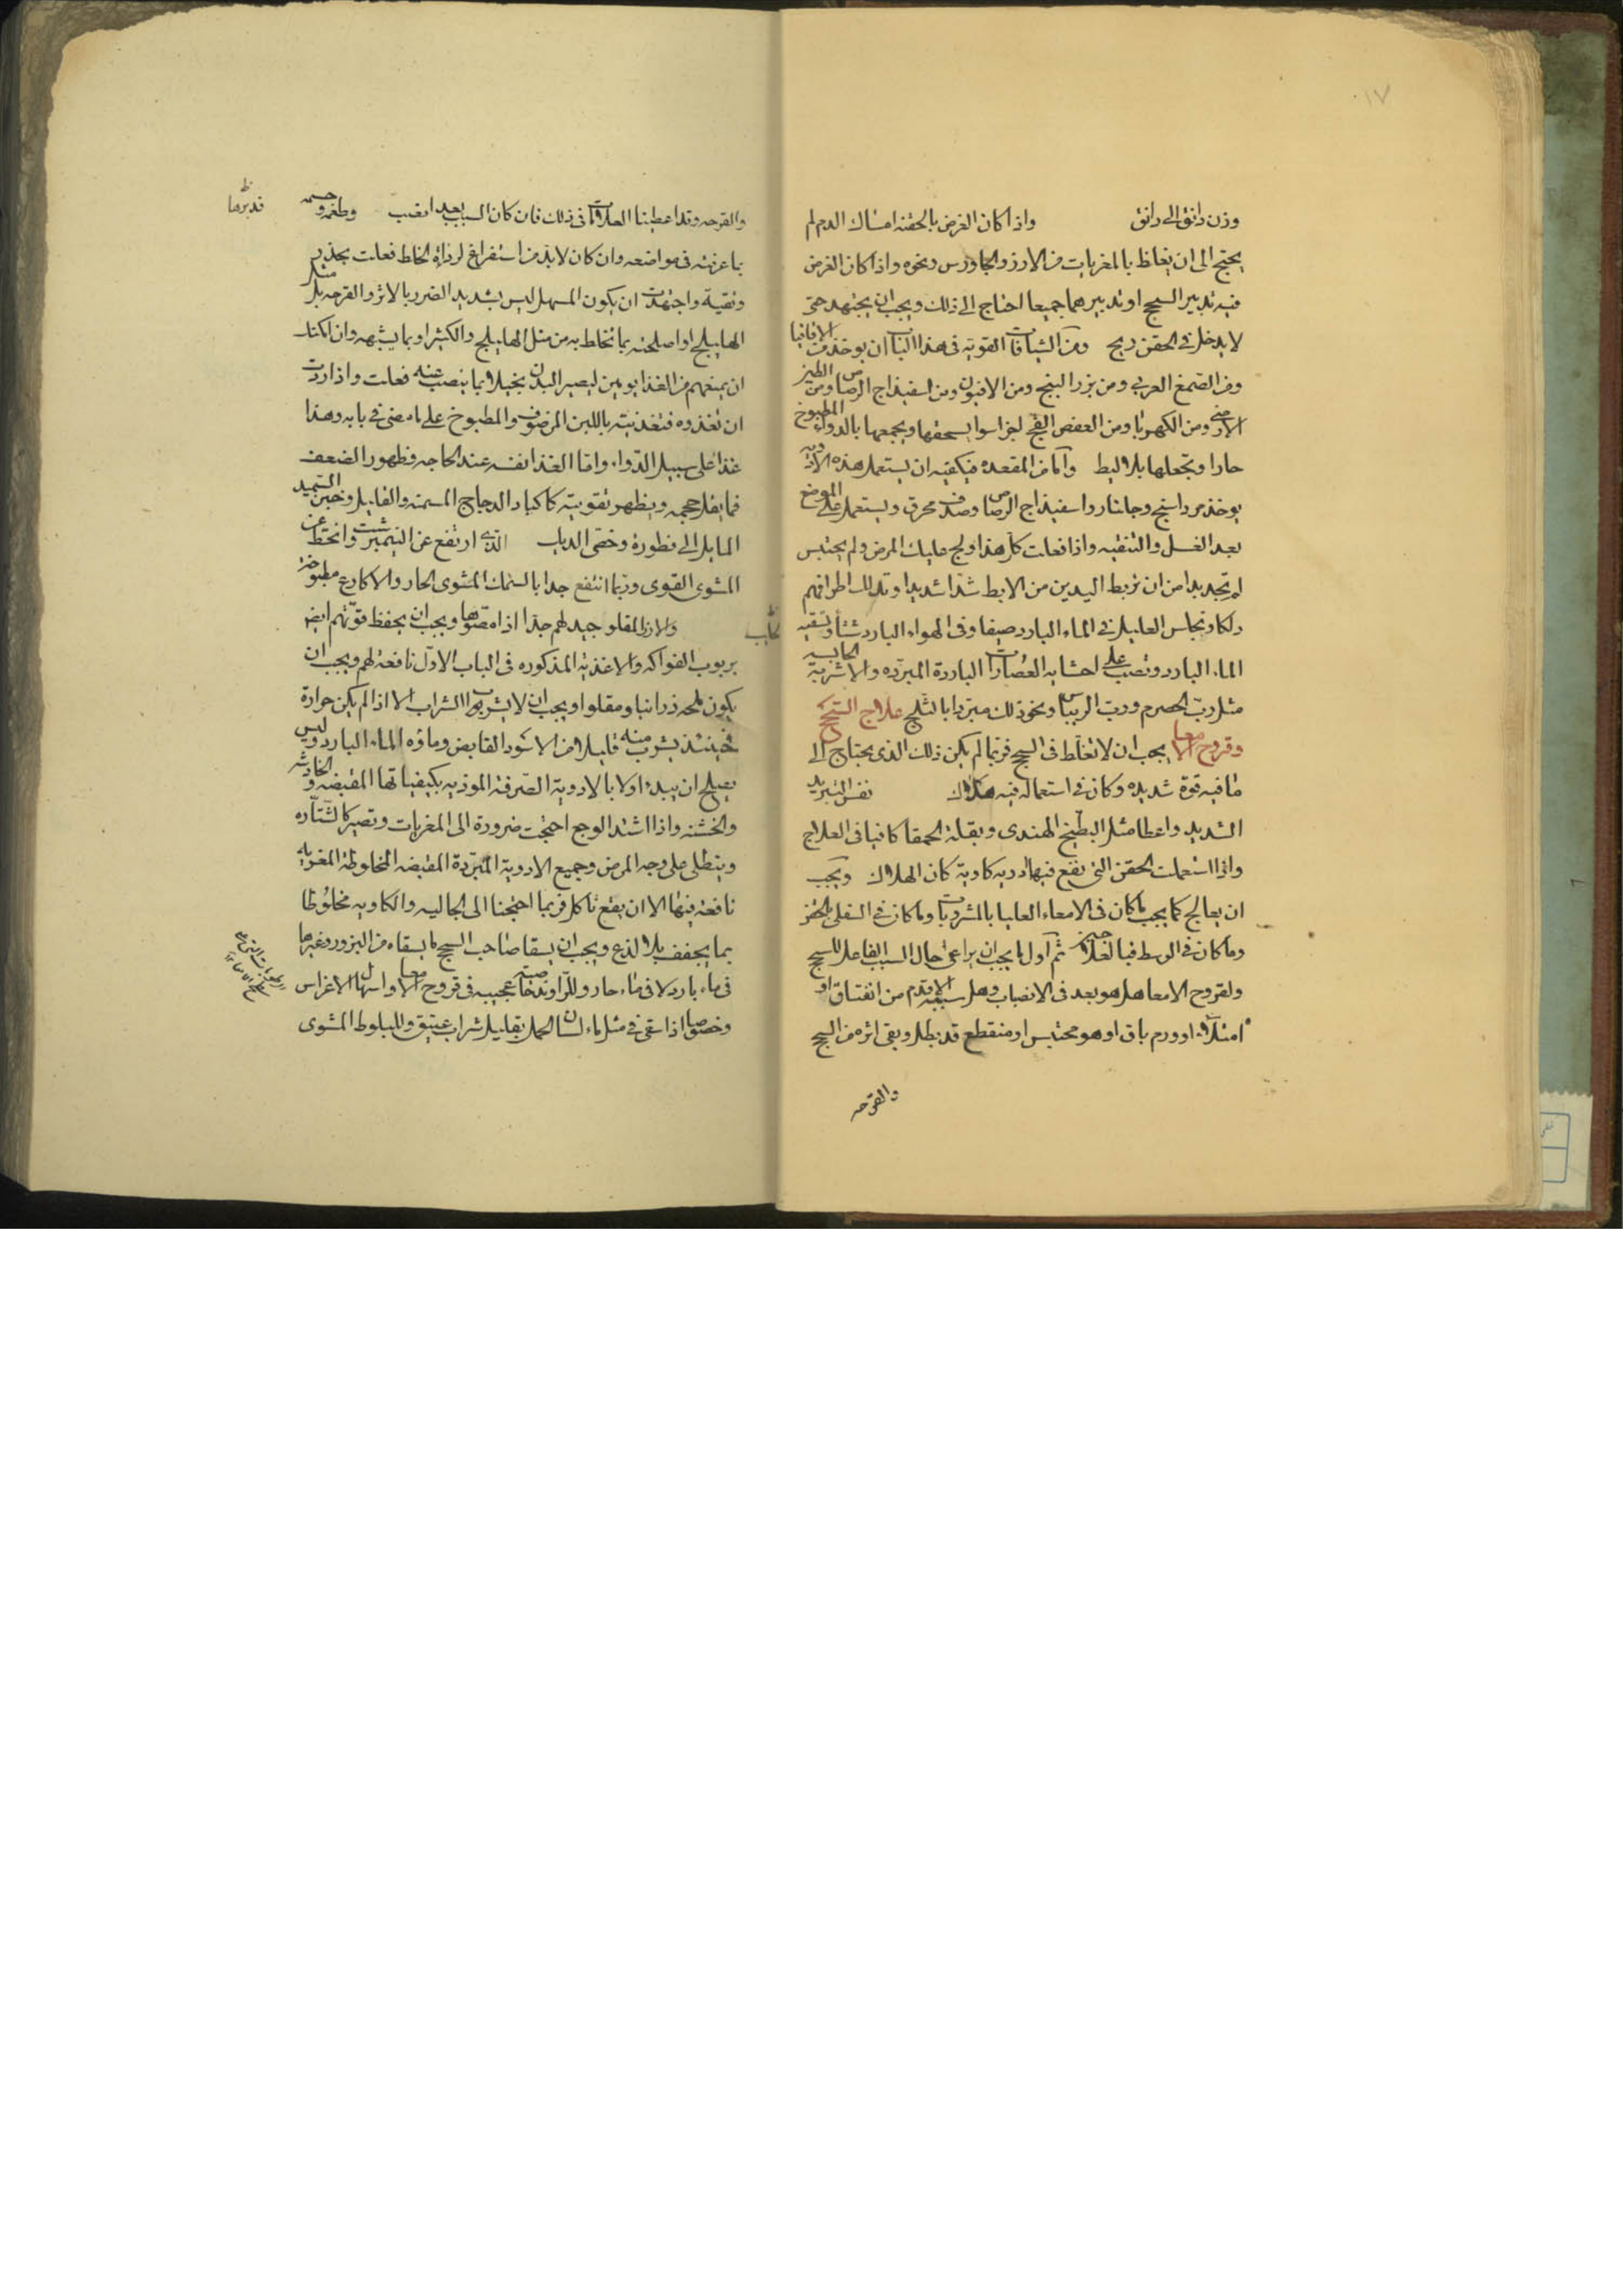 ١٧
وزن دانق الى دانق واذا كان الغرض بالحقنه امساك الدم لم
يحتج الى ان يغلظ بالمغريات من الارز والجاورس ونحوه واذا كان الغرض
فيه تدبير السحج او تدبيرهما جميعا احتاج الى ذلك ويجب ان يجتهد حتى
لا يدخل فى الحقن ريح ومن الشيافات القويه فى هذا الباب ان يوخذ من الاقاقيا
ومن الصمغ العربى ومن بزر البنج ومن الافيون ومن اسفيذاج الرصاص ومن الطين
الارمنى ومن الكهربا ومن العفص الفج اجزا سوا يسحقها ويجمعها بالدواء المطبوخ
حارا وتجعلها بلاليط واما من المقعده فيكفيه ان يستعمل هذه الادويه
يوخذ مرداسنج وجلنار واسفيذاج الرصاص وصدف محرق ويستعمل على الموضع
بعد الغسل والتنقيه واذا فعلت كل هذا ولج عليك المرض ولم يحتبس
لم تجد بدا من ان تربط اليدين من الابط شدا شديدا وتدلك اطرافهم
دلكا وتجلس العليل فى الماء البارد صيفا وفى الهواء البارد شتأ وتسقيه
الماء البارد وتصب على احشايه العصارات الباردة المبرده والاشربة الحابسه
مثل رب الحصرم ورب الريباس ونحو ذلك مبردا بالثلج علاج السحج
وقروح الامعا يجب ان لا تغلط فى السحج فربما لم يكن ذلك الذى يحتاج الى
ما فيه قوة شديده وكان فى استعماله فيه هلاك نفس التبريد
الشديد واعطا مثل البطيخ الهندى وبقلة الحمقا كافيا فى العلاج
واذا استعملت الحقن التى يقع فيها ادويه كاوية كان الهلاك ويجب
ان يعالج كما يجب ما كان فى الامعاء العليا بالمشروبات وما كان فى السفلى بالحقن
وما كان فى الوسط فبالعلاجين ثم اول ما يجب ان يراعى حال السبب الفاعل للسحج
ولقروح الامعا هل هو بعد فى الانصباب وهل سببه الاقدم من انفتاق او
امتلاء او ورم باق او هو محتبس او منقطع قد بطل وبقى اثره من السحج
والقرحه
والقرحه وقد اعطينا العلامات فى ذلك فان كان السبب بعد انصب وطغمه و حسمه
قدبرها
بما عرفته فى مواضعه وان كان لا بد من استفراغ لرداة الخلط فعلت بحذر
وتقية واجتهدت ان يكون المسهل ليس بشديد الضرر بالاثر والقرحه بل مثل
الهليلج او اصلحته بما تخلط به من مثل الهليلج والكثيرا وبما يشبهه وان امكنك
ان يمنعهم من الغذا يومين ليصير البدن بخيلا بما ينصب عنه فعلت واذا اردت
ان تغذوه فتغذيته باللبن المرضوف والمطبوخ على ما مضى فى بابه وهذا
غذا على سبيل الدواء واما الغذا نفسه عند الحاجه وظهور الضعف
فما يقل حجمه ويظهر تقويته كاكباد الدجاج المسمنه والقليل وخبز السميد
المايل الى فطوره وخصى الديك الذى ارتفع عن النيمبرشت وانحط عن
المشوى القوى وربما انتفع جدا بالسمك المشوى الحار والاكارع مطبوخة
والارز المقلو جيد لهم جدا اذا امتصوها ويجب ان يحفظ قوتهم ايضا
بربوب الفواكه والاغذيه المذكوره فى الباب الاول نافعة لهم ويجب ان
يكون ملحه ذرانيا ومقلوا ويجب ان لا يشربوا الشراب الا اذا لم يكن حرارة
فحينئذ يشرب منه قليلا من الاسود القابض وماؤه الماء البارد وليس
يصلح ان يبدء اولا بالادوية الصرفة الموذيه بكيفياتها المقبضه و الخادشه
والخشنه واذا اشتد الوجع احتجت ضرورة الى المغريات وتصير كالستاره
ويتطلى على وجه المرض وجميع الادوية المبردة المقبضه المخلوطة المغريه
نافعة فيها الا ان يقع تاكل فربما احتجنا الى الجاليه والكاويه مخلوطا
بما يجفف بلا لذع ويجب ان يسقا صاحب السحج ما يسقاه من البزور وغيرها
فى ماء بارد لا فى ماء حار وللراوند خاصية عجيبه فى قروح الامعا واسهال الاغراس
وخصوصا اذا سقى فى مثل ماء لسان الحمل بقليل شراب عتيق وللبلوط المشوى